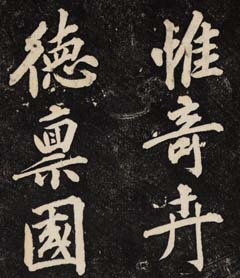 惟奇卉
德禀國